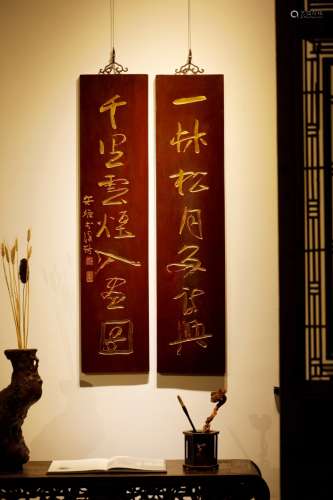 一林松月多詩興
千里雲煙入畫圖